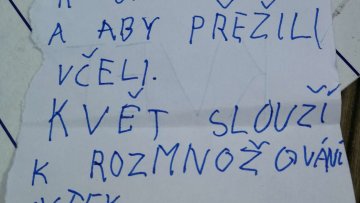 A ABY PŘEŽILI
VČELI.
KVĚT SLOUŽÍ
K ROZMNOŽOVÁNÍ